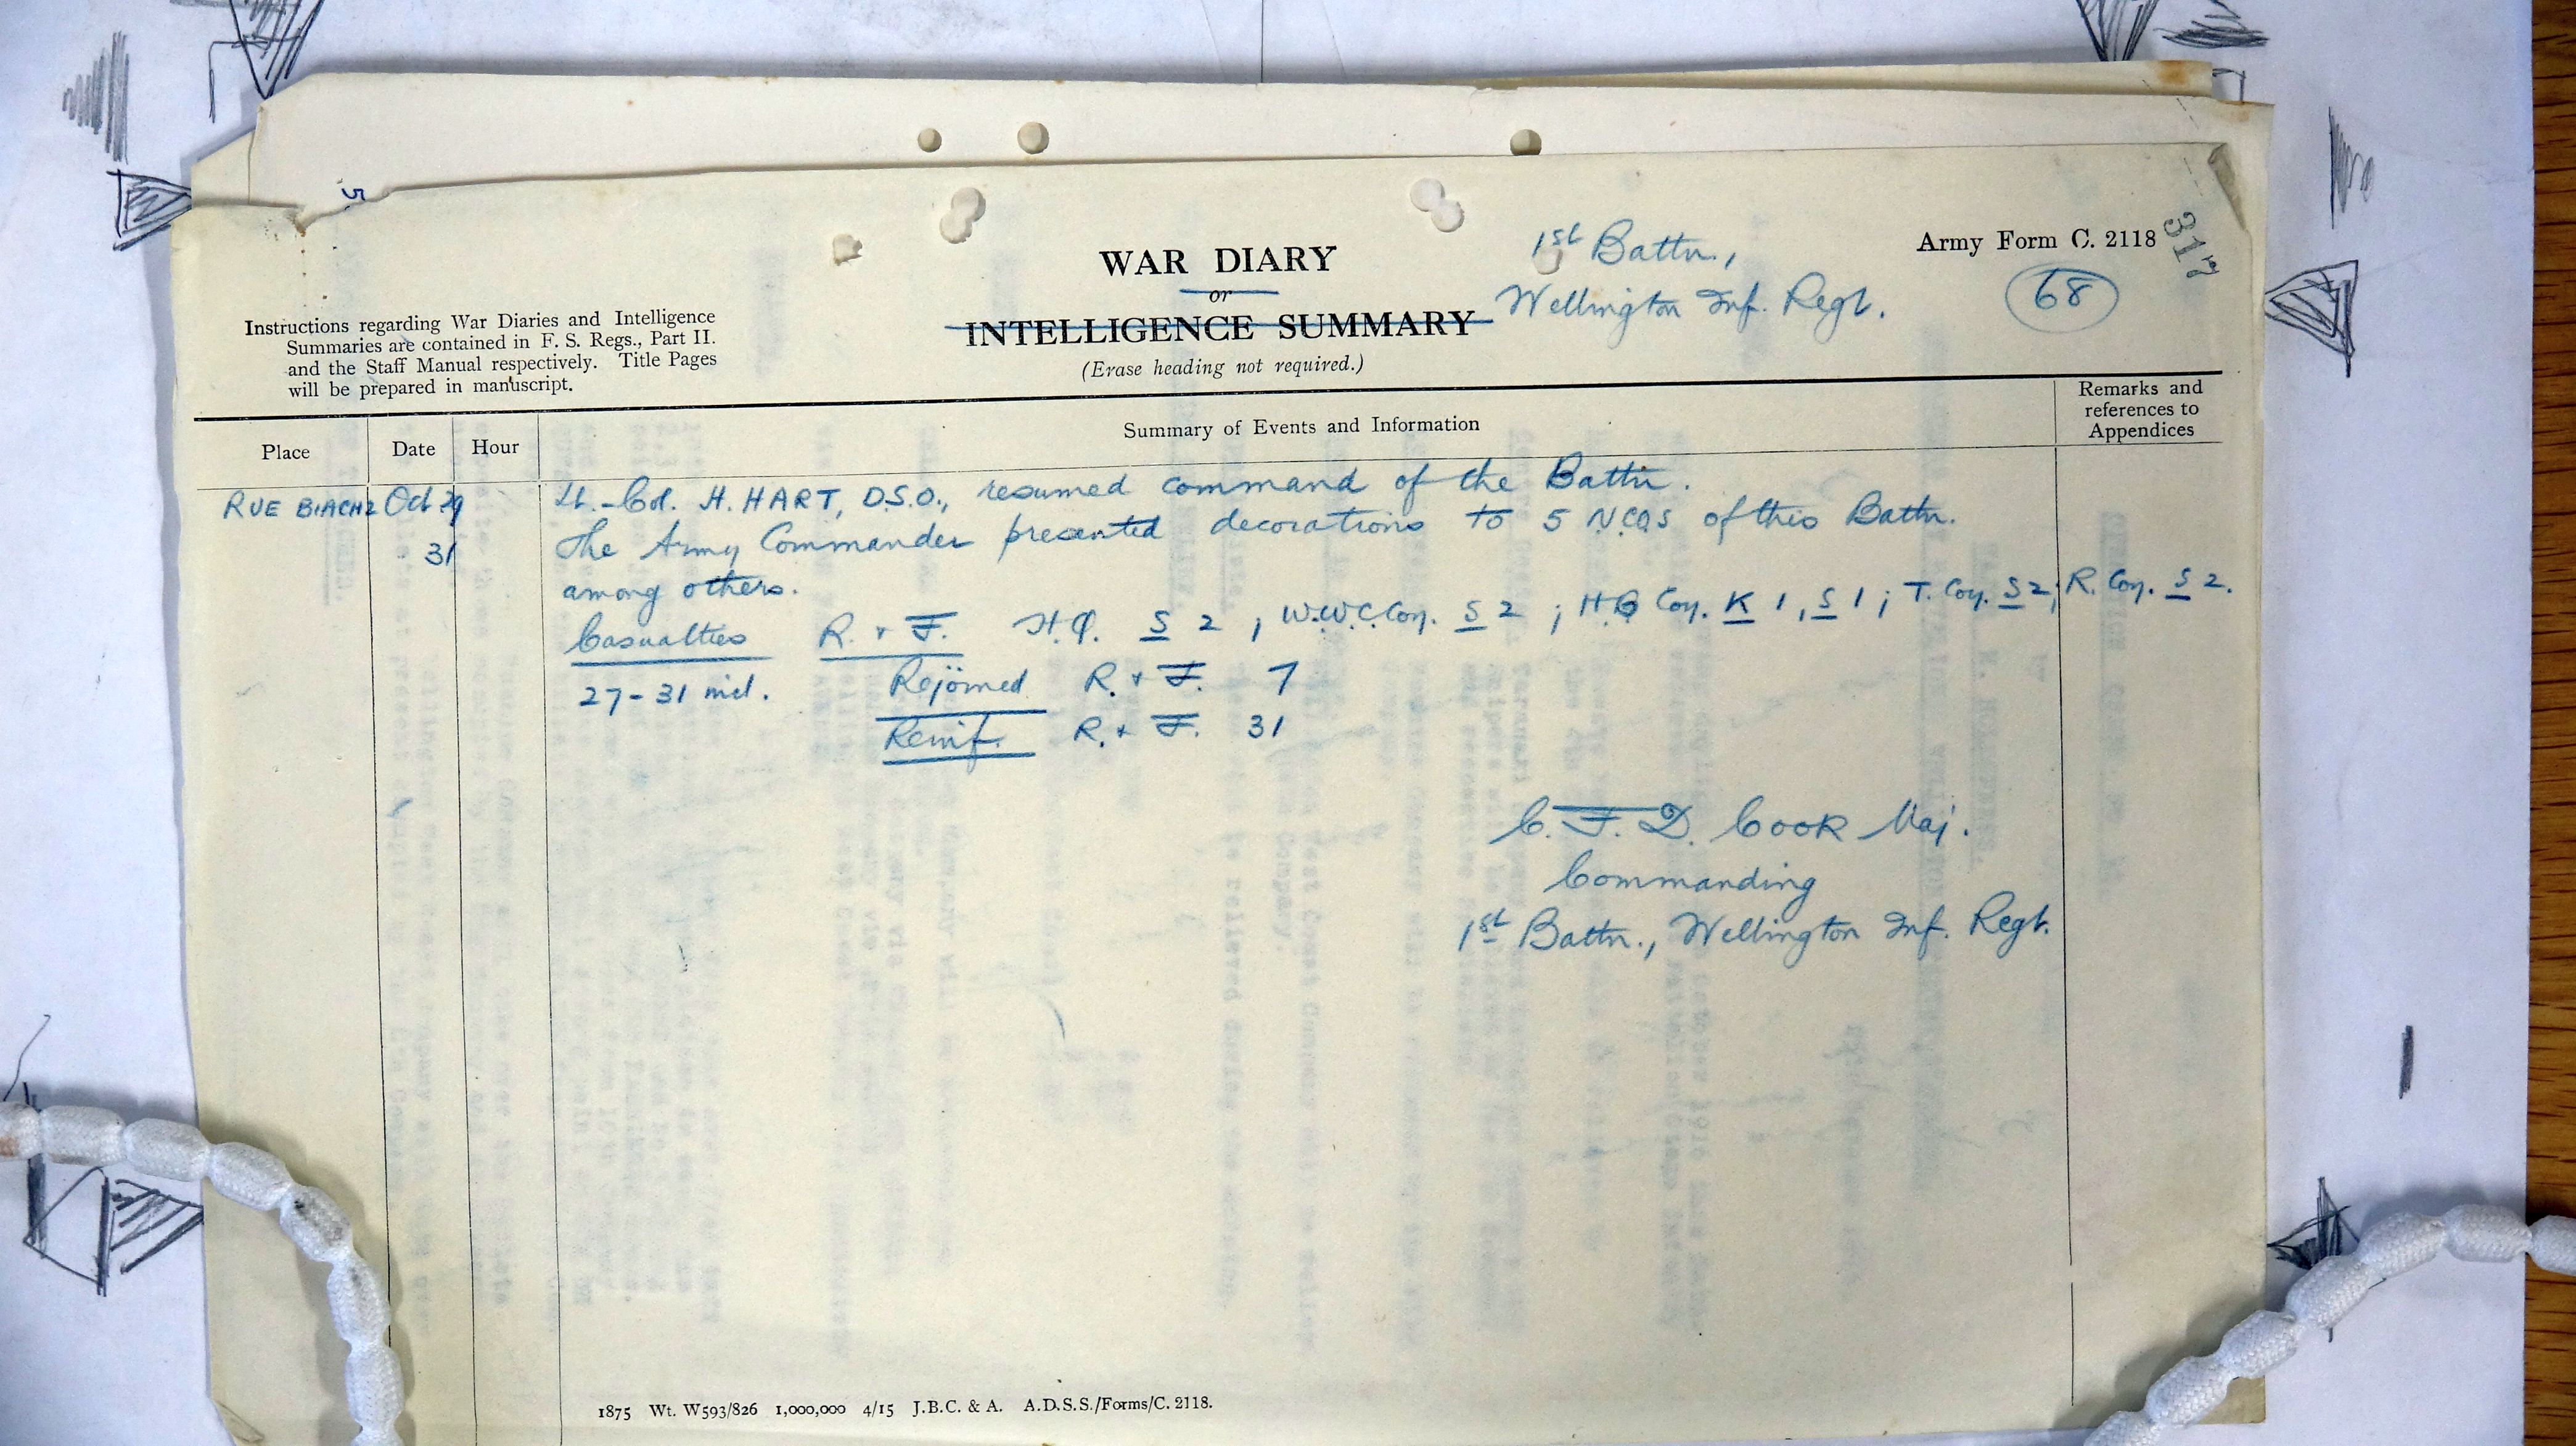 317
Army Form C. 2118
68
1st Battn.,
Wellington Inf. Regt.
WAR DIARY
or
INTELLIGENCE SUMMARY
(Erase heading not required.)
Instructions regarding War Diaries and Intelligence
Summaries are contained in F. S. Regs., Part II.
and the Staff Manual respectively. Title Pages
will be prepared in manuscript.
Place Date Hour Summary of Events and Information Remarks and
references to
Appendices
RUE BIACHE Oct 29 Lt.-Col. H. HART, D.S.O., resumed command of the Battn.
31 The Army Commander presented decorations to 5 N.C.O.S of this Battn.
among others.
Casualties R. + F. H.Q. S 2 ; W.W.C. Coy. S 2 ; H.B Coy. K 1, S 1 ; T. Coy. S 2; R. Coy. S 2.
27-31 incl. Rejoined R. + F. 7
Reinf. R. + F. 31
C. F. D. Cook Maj.
Commanding
1st Battn., Wellington Inf. Regt.
1875 Wt. W593/826 1,000,000 4/15 J.B.C. & A. A.D.S.S./Forms/C. 2118.